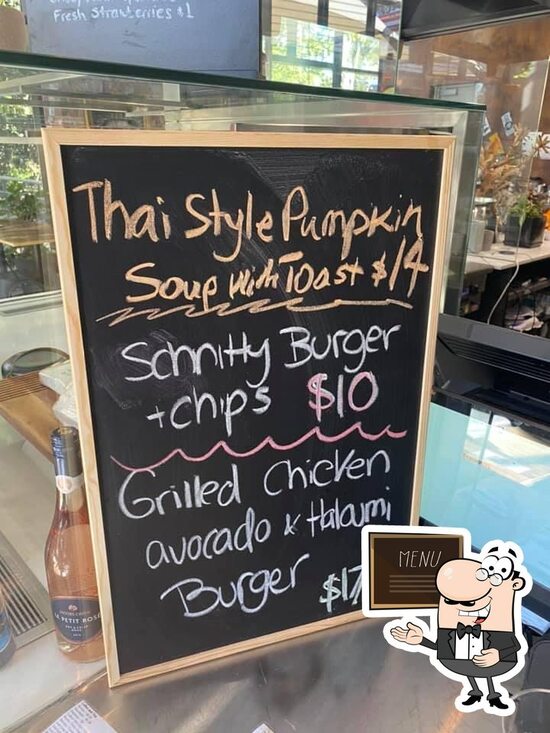 Fresh Strawberries $1
Thai Style Pumpkin
Soup With Toast $14
Schnitty Burger
+chips $10
Grilled Chicken
avocado & Haloumi
Burger $17
MENU
PETIT ROSÉ